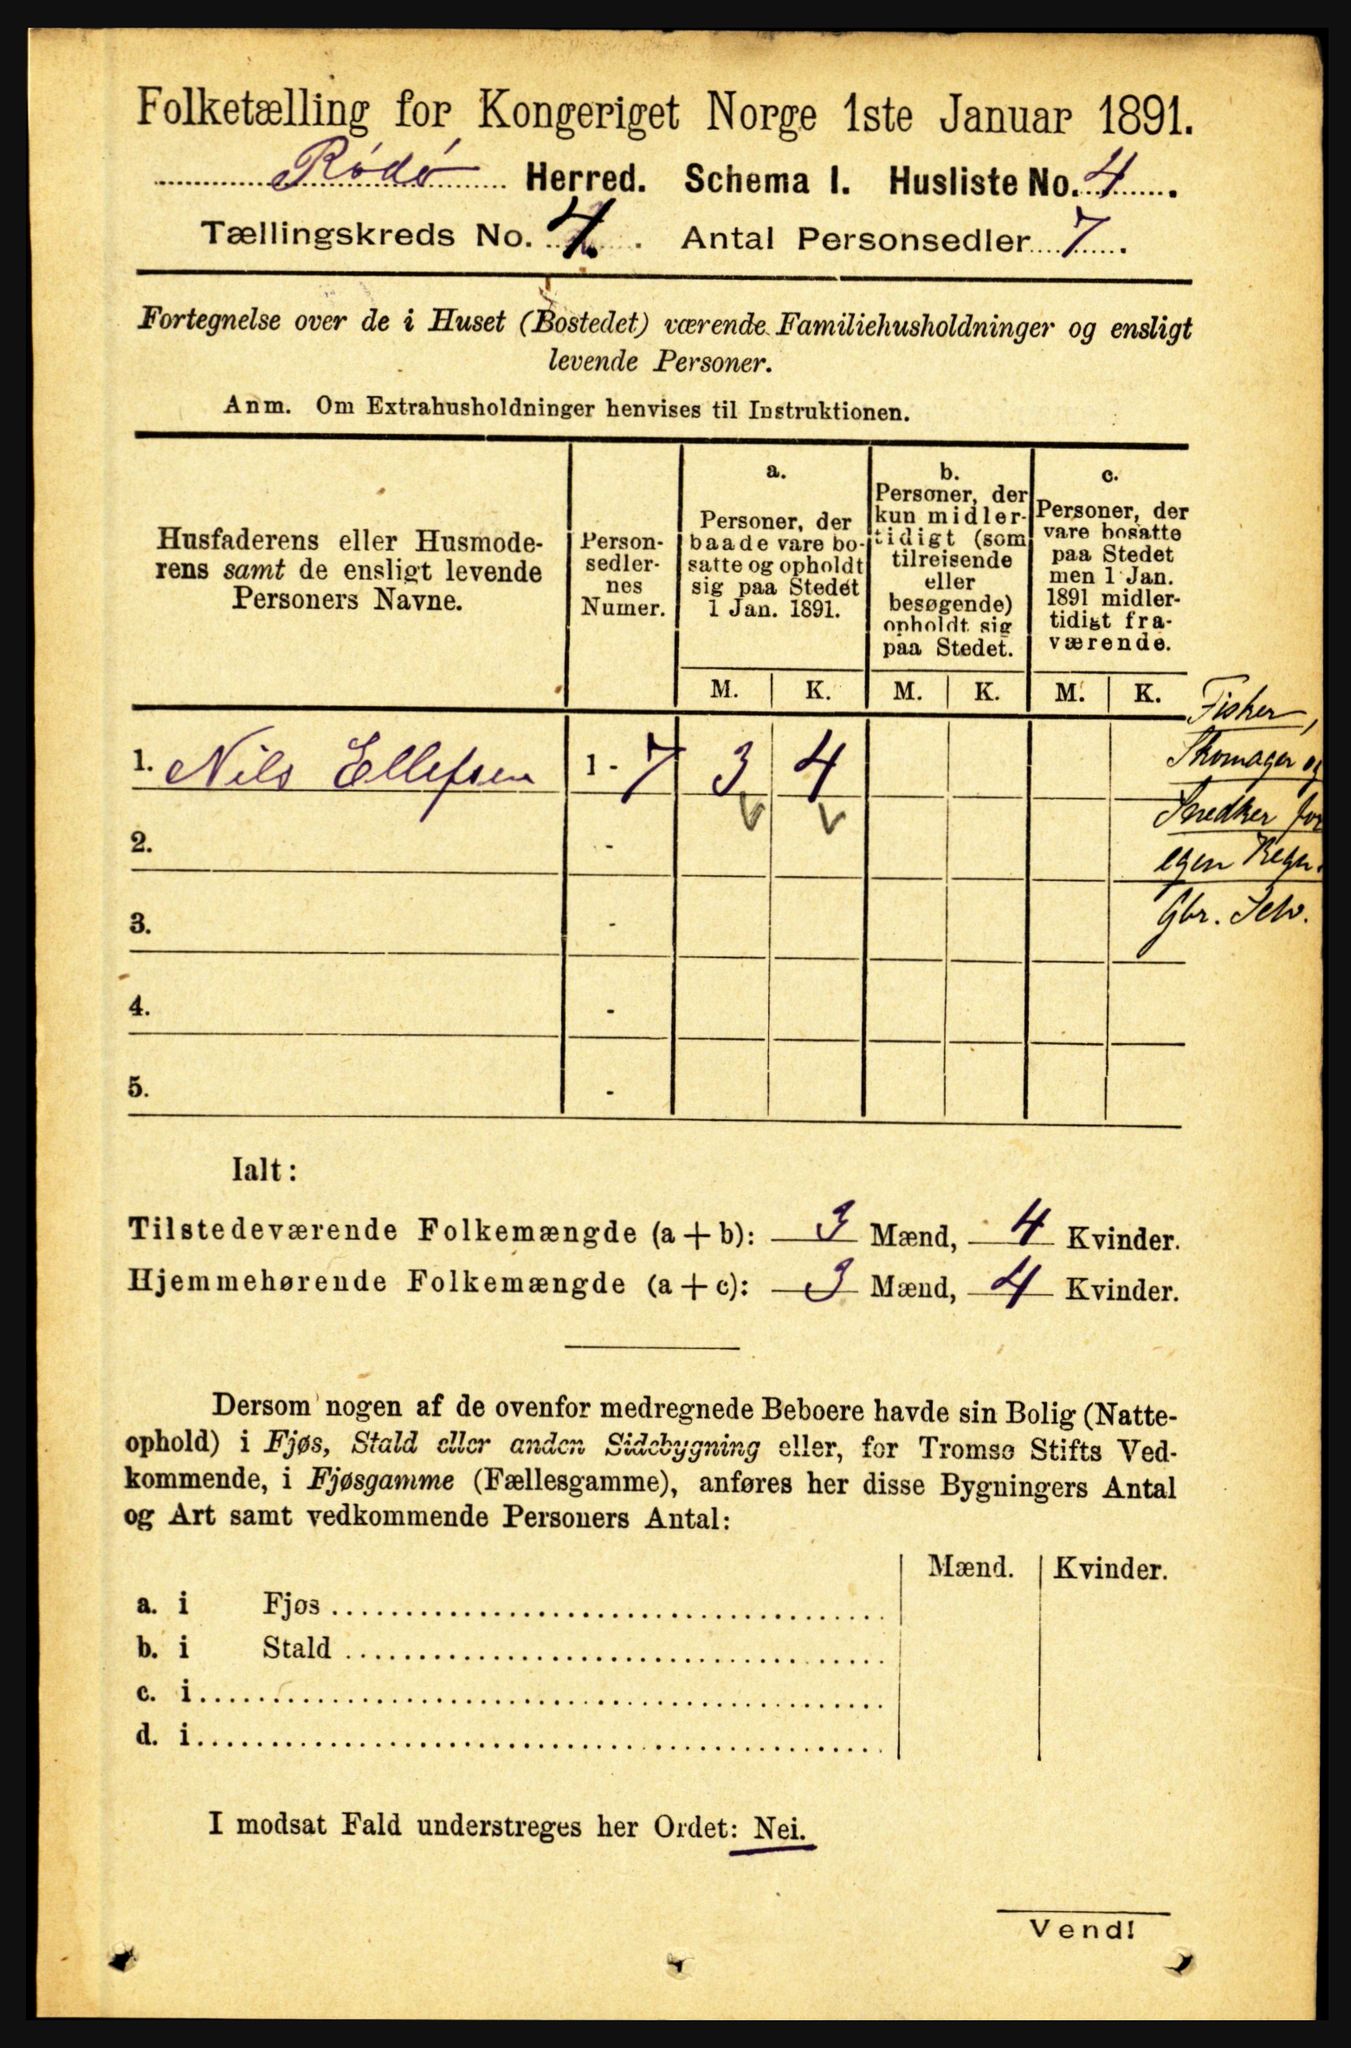 Folketælling for Kongeriget Norge 1ste Januar 1891.
Rødø Herred. Schema I. Husliste No. 4.
Tællingskreds No. 4. Antal Personsedler 7.
Fortegnelse over de i Huset (Bostedet) værende Familiehusholdninger og ensligt
levende Personer.
Anm. Om Extrahusholdninger henvises til Instruktionen.
Husfaderens eller Husmode-
rens samt de ensligt levende
Personers Navne.
Person-
sedler-
nes
Numer.
a.
Personer, der
baade vare bo-
satte og opholdt
sig paa Stedet
1 Jan. 1891.
b.
Personer, der
kun midler-
tidigt (som
tilreisende
eller
besøgende)
opholdt sig
paa Stedet.
c.
Personer, der
vare bosatte
paa Stedet
men 1 Jan.
1891 midler-
tidigt fra-
værende.
M. K. M. K. M. K.
1. Nils Ellefsen 1 - 7 3 4
2. -
3. -
4. -
5. -
Fisker,
Skomager og
Snedker for
egen Regn.
Gbr. Selv.
Ialt:
Tilstedeværende Folkemængde (a + b): 3 Mænd, 4 Kvinder.
Hjemmehørende Folkemængde (a + c): 3 Mænd, 4 Kvinder.
Dersom nogen af de ovenfor medregnede Beboere havde sin Bolig (Natte-
ophold) i Fjøs, Stald eller anden Sidebygning eller, for Tromsø Stifts Ved-
kommende, i Fjøsgamme (Fællesgamme), anføres her disse Bygningers Antal
og Art samt vedkommende Personers Antal:
Mænd. Kvinder.
a. i Fjøs
b. i Stald
c. i
d. i
I modsat Fald understreges her Ordet: Nei.
Vend!